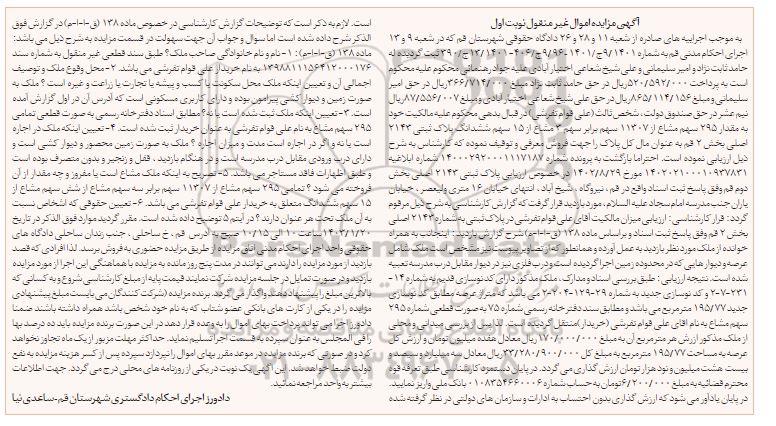 آگهی مزایده اموال غیر منقول نوبت اول
به موجب اجراییه های صادره از شعبه ۱۱ و ۲۸ و ۲۶ دادگاه حقوقی شهرستان قم که در شعبه ۹ و ۱۳
اجرای احکام مدنی قم به شماره ثبت گردیده له
حامد ثابت نژاد و امیر سلیمانی و علی شیخ شعاعی اختیار آبادی علیه جواد رهنمائی محکوم علیه محکوم
است به پرداخت ۵۲۰/۵۹۲/۰۰۰ریال در حق حامد ثابت نژاد مبلغ ۳۶۶/۷۱۴/۰۰۰ریال در حق امیر
سلیمانی و مبلغ ۸۶۵/۱۱۴/۱۵۶ریال در حق علی شیخ شعاعی اختیار آبادی و مبلغ ۸۷/۵۵۶/۰۰۷ریال
نیم عشر در حق صندوق دولت، شخص ثالث (علی قوام تفرشی) در قبال بدهی محکوم علیه مالکیت خود
به مقدار ۲۹۵ سهم مشاع از ۱۱۳۰۷ سهم برابر سهم ۳ مشاع از ۱۵ سهم ششدانگ پلاک ثبتی ۲۱۴۳
اصلی بخش ۲ قم به عنوان مال کل پلاک را جهت فروش معرفی و توقیف نموده که کارشناس به شرح
ذیل ارزیابی نموده است. احتراما بازگشت به پرونده شماره ۱۴۰۰۰۲۹۲۰۰۰۱۱۱۷۱۸۷ شماره ابلاغیه
۱۴۰۲۰۲۱۰۰۰۱۰۹۳۷۸۳۱ مورخ ۱۴۰۲/۸/۲۹ در خصوص ارزیابی پلاک ثبتی ۲۱۴۳ اصلی بخش
دوم قم وفق پاسخ ثبت اسناد واقع در قم، نیروگاه، شیخ آباد، انتهای خیابان ۱۶ متری ولیعصر، خیابان
یاران جنب مدرسه امام سجاد علیه السلام، مورد بازدید قرار گرفت که گزارش کارشناسی به شرح ذیل مرقوم
گردد: قرار کارشناسی: ارزیابی میزان مالکیت آقای علی قوام تفرشی در پلاک ثبتی به شماره ۲۱۴۳ اصلی
بخش ۲ قم وفق پاسخ ثبت اسناد و براساس ماده ۱۳۸ (ق-ا-ا-م) شرح گزارش بازدید: اینجانب به همراه
خوانده از ملک مورد نظر بازدید به عمل آورده و همانطور که از تصاویر پیوست نیز مشخص است ملک شامل
عرصه و دیوارهایی که در محدوده زمین اجرا گردیده است و درب فلزی نیز در دیوار مقابل درب مدرسه تعبیه
شده است. نتیجه ارزیابی: طبق بررسی اسناد و مدارک، ملک مذکور دارای کد نوسازی قدیم به شماره ۱۴-
۲۳۱-۷-۲ و کد نوسازی جدید به شماره ۲۹-۱۲۹-۳۰۴-۲ می باشد که متراژ عرصه مطابق کد نوسازی
جدید ۱۹۵/۷۷ مترمربع می باشد و مطابق سند دفترخانه رسمی شماره ۷۵ به صورت قطعی شماره ۲۹۵
سهم مشاع به نام آقای علی قوام تفرشی (خریدار)، منتقل گردیده است. لذا پس از بررسی میدانی و محلی
از ملک مذکور ارزش هر مترمربع آن به مبلغ ۱۷۰/۰۰۰/۰۰۰ ریال معادل هفده میلیون تومان و ارزش کل
عرصه به مساحت ۱۹۵/۷۷ مترمربع به مبلغ کل ۳۳/۲۸۰/۹۰۰/۰۰۰ ریال معادل سه میلیارد و سیصد و
بیست هشت میلیون و نود هزار تومان ارزش گذاری می گردد. در پایان دستمزد کارشناسی طبق تعرفه قوه
محترم قضائیه به مبلغ ۶/۲۰۰/۰۰۰تومان به حساب شماره ۰۱۰۸۳۵۴۶۶۰۰۰۶ بانک ملی واریز نمایید.
در پایان یادآور می شود که ارزش گذاری بدون احتساب به ادارات و سازمان های دولتی در نظر گرفته شده
است. لازم به ذکر است که توضیحات گزارش کارشناسی در خصوص ماده ۱۳۸ (ق-ا-ا-م) در گزارش فوق
الذکر شرح داده شده است اما سوال و جواب آن جهت سهولت در قسمت مزایده به شرح ذیل می باشد:
ماده ۱۳۸ (ق-ا-ا-م): ۱- نام و نام خانوادگی صاحب ملک؟ طبق سند قطعی غیر منقول به شماره سند
۱۳۹۸۸۱۱۱۵۶۴۱۲۰۰۰۱۷۶ به نام خریدار علی قوام تفرشی می باشد. ۲- محل وقوع ملک و توصیف
اجمالی آن و تعیین اینکه ملک محل سکونت یا کسب و پیشه یا تجارت یا زراعت و غیره است؟ ملک به
صورت زمین و دیوار کشی پیرامون بوده و دارای کاربری مسکونی است که آدرس آن در اول گزارش آمده
است. ۳- تعیین اینکه ملک ثبت شده است یا نه؟ مطابق اسناد دفترخانه رسمی به صورت قطعی تمامی
۲۹۵ سهم مشاع به نام علی قوام تفرشی به عنوان خریدار ثبت شده است. ۴- تعیین اینکه ملک در اجاره
است یا نه و اگر در اجاره است مدت و میزان اجاره؟ ملک به صورت زمین محصور و دیوار کشی است و
دارای درب ورودی مقابل درب مدرسه است و در هنگام بازدید، قفل و زنجیر و بدون متصرف بوده است
و طبق اظهارات فاقد مستاجر می باشد. ۵- تصریح به اینکه ملک مشاع است یا مفروز و چه مقدار از آن
فروخته می شود؟ تمامی ۲۹۵ سهم مشاع از ۱۱۳۰۷ سهم برابر سه سهم مشاع از شش سهم مشاع از
۱۵ سهم ششدانگ متعلق به خریدار علی قوام تفرشی می باشد. ۶- تعیین حقوقی که اشخاص نسبت
به آن ملک تحت هر عنوان دارند؟ در آیتم ۵ توضیح داده شده است. مقرر گردید موارد فوق الذکر در تاریخ
۱۴۰۳/۱/۲۰ساعت ۱۰ الی ۱۰/۱۵ صبح به آدرس قم، خ ساحلی، جنب زندان ساحلی دادگاه های
حقوقی واحد اجرای احکام مدنی اتاق مزایده از طریق مزایده حضوری به فروش برسد. لذا افرادی که قصد
بازدید از مورد مزایده را دارند می توانند در مدت پنج روز مانده به مزایده با هماهنگی این اجرا از مورد مزایده
بازدید و در صورت تمایل در جلسه مزایده شرکت نمایند قیمت پایه از مبلغ کارشناسی شروع و به کسانی که
بالاترین مبلغ را پیشنهاد دهند واگذار می گردد. برنده مزایده (شرکت کنندگان می بایست مبلغ پیشنهادی
مزایده را در یکی از کارت های بانکی عضو شتاب که به نام خود شخص باشد همراه داشته باشند ضمنا
دادورز اجرا می تواند پرداخت بهای اموال را به وعده قرار دهد در این صورت برنده مزایده باید ده درصد بها
را فی المجلس به عنوان سپرده به قسمت اجرا تسلیم نماید. حداکثر مهلت مزبور از یک ماه تجاوز نخواهد
کرد و در صورتی که برنده مزایده در موعد مقرر بهای اموال را نپردازد سپرده پس از کسر هزینه مزایده به نفع
دولت ضبط خواهد شد. این آگهی یک نوبت در یکی از روزنامه های محلی درج می گردد. جهت اطلاعات
بیشتر به واحد مراجعه نمائید.
دادورز اجرای احکام دادگستری شهرستان قم-ساعدی نیا